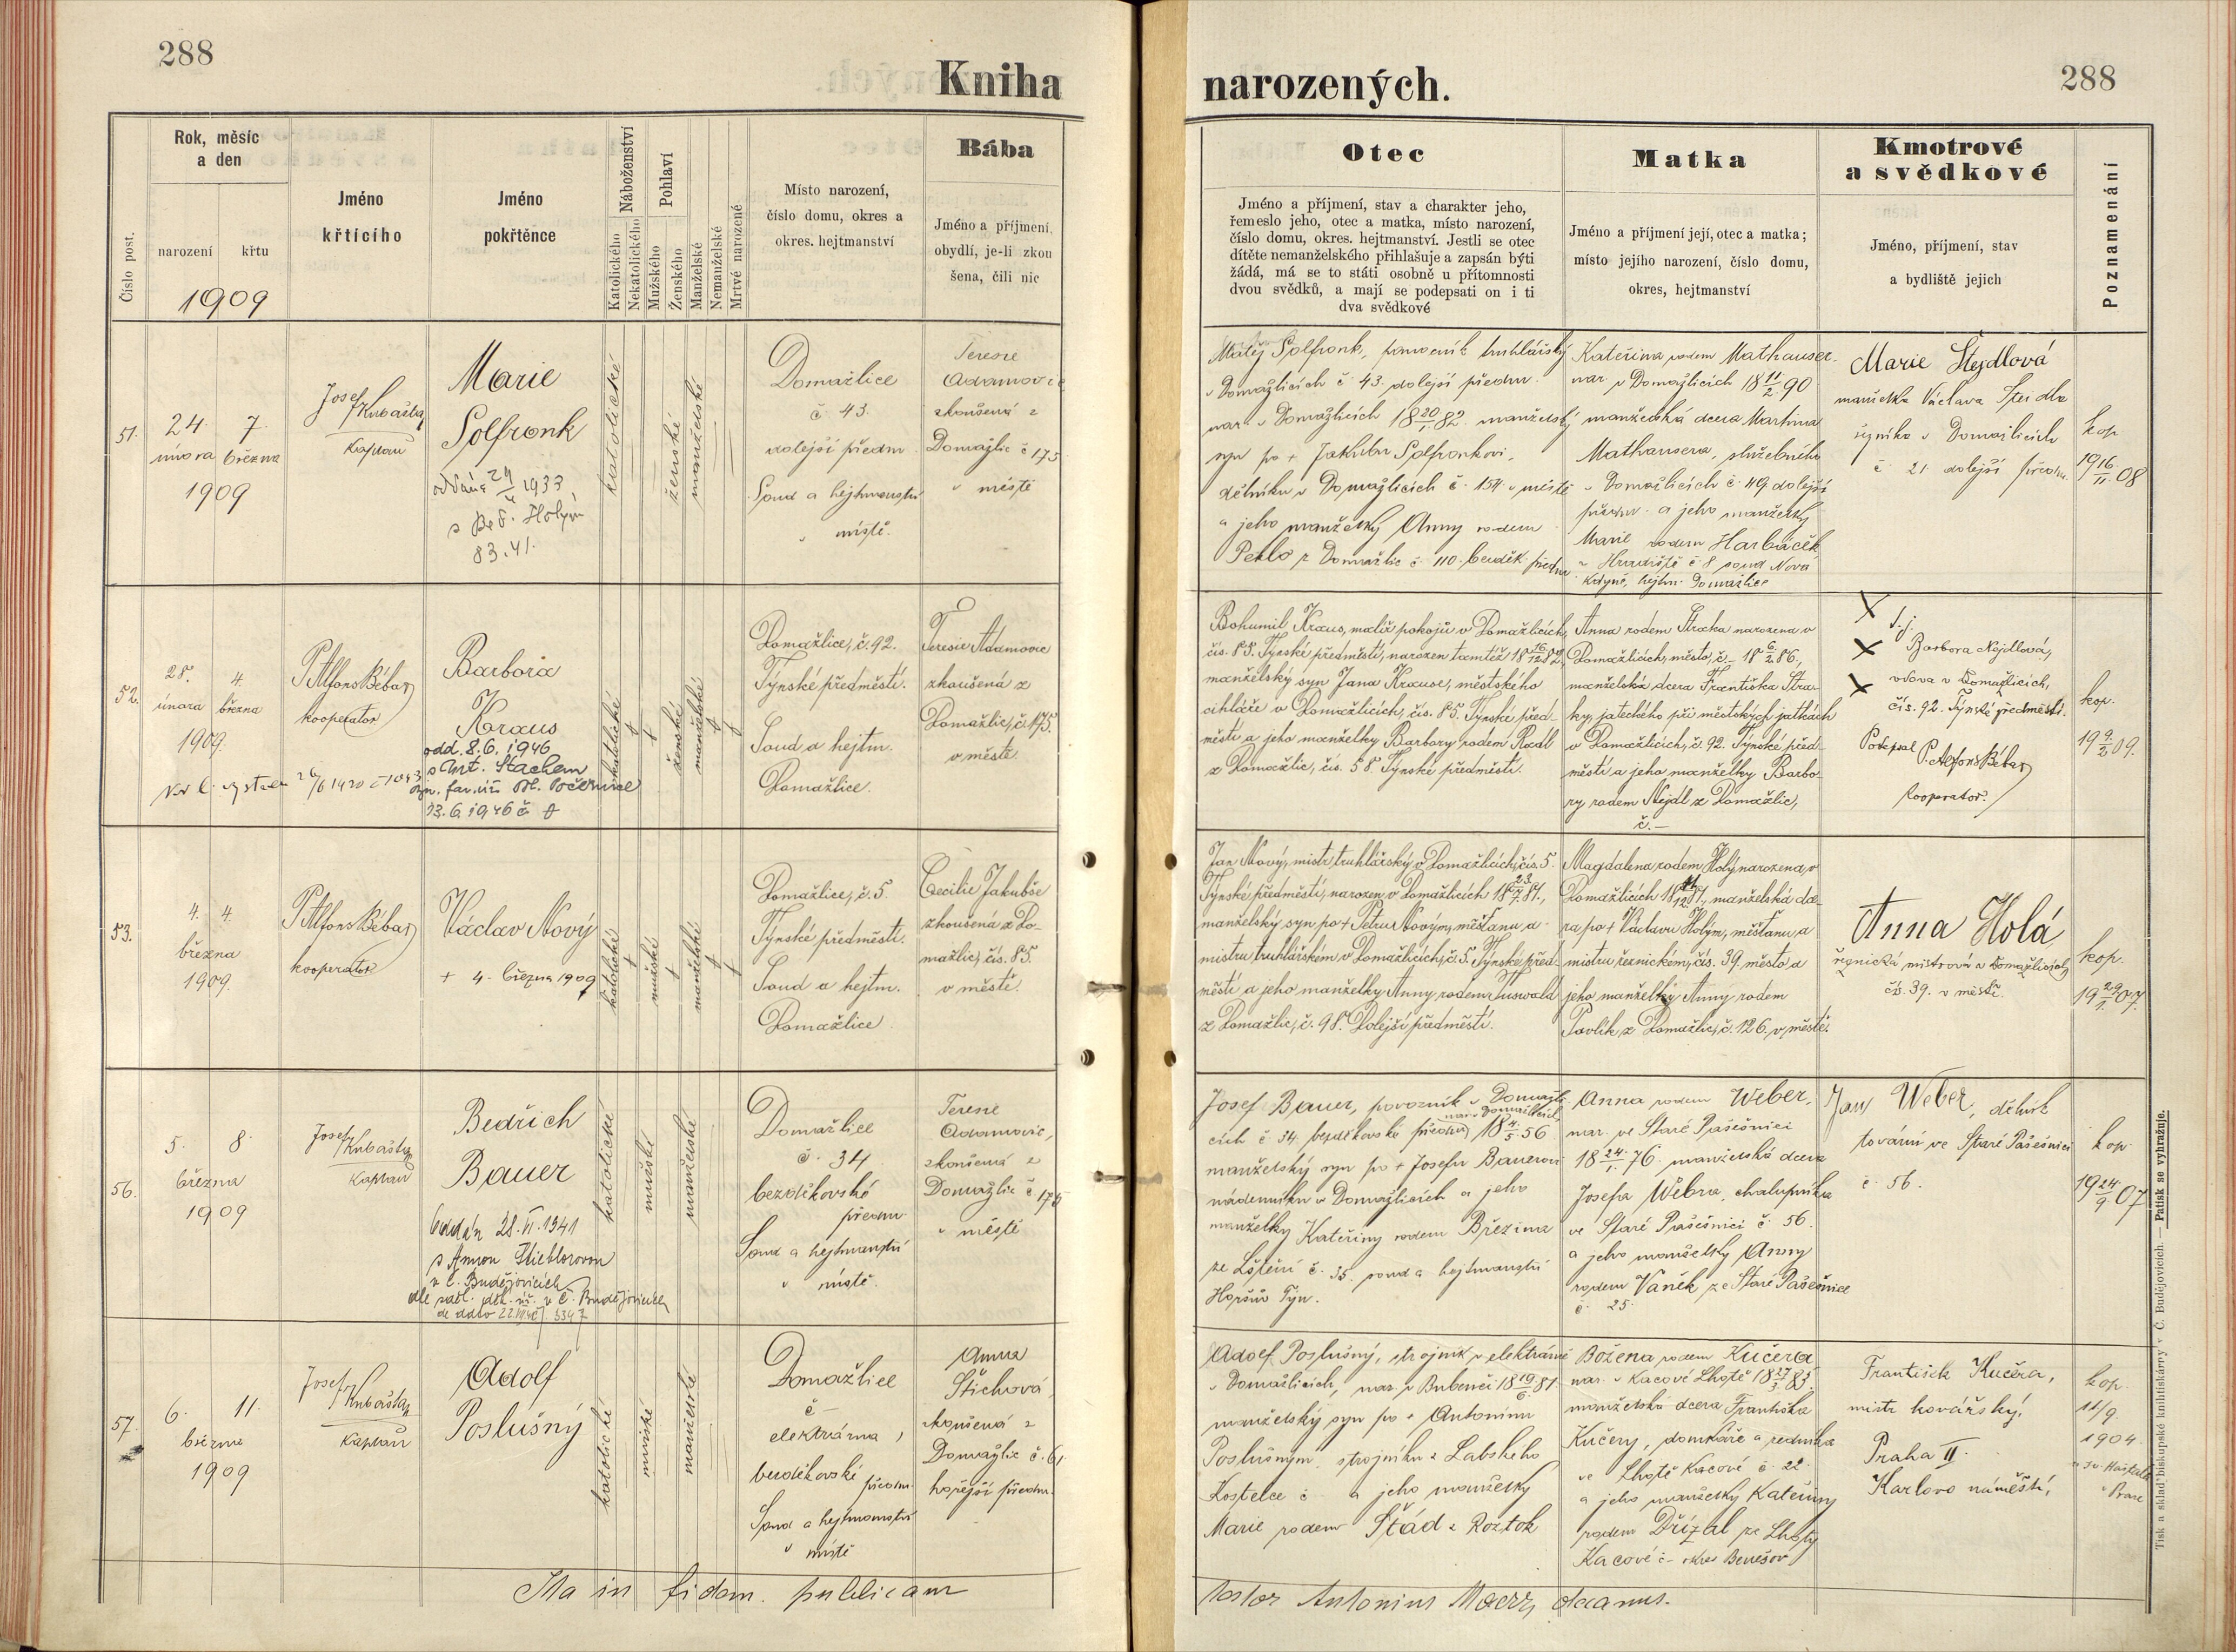 288
Kniha
narozených.
288
Číslo post.
Rok, měsíc
a den
narození
křtu
1909
Jméno
křticího
Jméno
pokřtěnce
Náboženství
Katolického
Nekatolického
Pohlaví
Mužského
Ženského
Manželské
Nemanželské
Mrtvě narozené
Místo narození,
číslo domu, okres a
okres. hejtmanství
Bába
Jméno a příjmení,
obydlí, je-li zkou
šena, čili nic
Otec
Jméno a příjmení, stav a charakter jeho,
řemeslo jeho, otec a matka, místo narození,
číslo domu, okres. hejtmanství. Jestli se otec
dítěte nemanželského přihlašuje a zapsán býti
žádá, má se to státi osobně u přítomnosti
dvou svědků, a mají se podepsati on i ti
dva svědkové
Matka
Jméno a příjmení její, otec a matka;
místo jejího narození, číslo domu,
okres, hejtmanství
Kmotrové
a svědkové
Jméno, příjmení, stav
a bydliště jejich
Poznamenání
51.
24. 7.
února března
1909
Josef Kubaštka
kaplan
Marie
Solfronk
oddána 24/4 1933
s Petr. Holým
83.41.
katolické
ženské
manželské
Domažlice
č 43.
dolejší předm.
Soud a hejtmanství
v místě.
Teresie
Adamovic
zkoušená z
Domažlic č 175
v městě
Matěj Solfronk, pomocník truhlářský
v Domažlicích č 43. dolejší předm.
nar. v Domažlicích 18 20/1. 82 manželský
syn po + Jakubu Solfronkovi,
dělníku v Domažlicích č. 154 v městě
a jeho manželky Anny rodem
Peklo z Domažlic č. 110. bezděk. předm.
Kateřina rodem Mathauser.
nar. v Domažlicích 18 11/2. 90
manželská dcera Martina
Mathausera, služebného
v Domažlicích č. 49. dolejší
předm. a jeho manželky
Marie rodem Harbáček
z Hradiště č 8 soud Nová
Kdyně, hejtm. Domažlice
Marie Štejdlová
manželka Václava Štejdla
řezníka v Domažlicích
č 21 dolejší předm.
kop
19 16/11. 08
52.
28. 4.
února března
1909.
P. Alfons Bébar
kooperator
Barbora
Kraus
odd. 8.6. 1946
s Ant. Stachem
13.6. 1946 č
katolické
ženské
manželské
Domažlice, č. 92.
Týnské předměstí.
Soud a hejtm.
Domažlice.
Teresie Adamovic
zkoušená z
Domažlic, č. 175.
v městě.
Bohumil Kraus, malíř pokojů v Domažlicích,
čís. 85. Týnské předměstí, narozen tamtéž 18 16/12. 82,
manželský syn Jana Krause, městského
cihláře v Domažlicích, čís. 85. Týnské před-
městí a jeho manželky Barbory rodem Raál
z Domažlic, čís. 58. Týnské předměstí.
Anna rodem Straka narozena v
Domažlicích, město, č.– 18 6/2. 86.,
manželská dcera Františka Stra-
ky, jatečkého při městských jatkách
v Domažlicích, č. 92. Týnské před-
městí, a jeho manželky Barbo-
ry rodem Nejdl z Domažlic,
č.–
X
X
X
t.j.
Barbora Nejdlová,
vdova v Domažlicích,
čís. 92. Týnské předměstí.
Podepsal P. Alfons Bébar
kooperator.
kop.
19 9/2. 09.
53.
4. 4.
března
1909.
P. Alfons Bébar
kooperator
Václav Nový
+ 4. března 1909
katolické
mužské
manželské
Domažlice, č. 5.
Týnské předměstí.
Soud a hejtm.
Domažlice
Cecilie Jakubše
zkoušená z Do-
mažlic, čís. 85.
v městě.
Jan Nový, mistr truhlářský v Domažlicích, čís. 5.
Týnské předměstí, narozen v Domažlicích 18 23/7. 81.,
manželský syn po + Petru Novým, měšťanu a
mistru truhlářském v Domažlicích, č. 5. Týnské před-
městí a jeho manželky Anny rodem Tuswald
z Domažlic, č. 98. Dolejší předměstí.
Magdalena rodem Holý narozena v
Domažlicích manželská dce-
ra po + Václavu Holým, měšťanu a
mistru řeznickém, čís. 39. město, a
jeho manželky Anny rodem
Pavlík z Domažlic, č. 126. v městě.
Anna Holá
řeznická mistrová v Domažlicích,
čís. 39. v městě.
kop.
19 29/1. 07.
56.
5. 8.
března
1909
Josef Kubaštka
kaplan
Bedřich
Bauer
Oddán 28. VI. 1941
s Annou Stieblorovou
v Č. Budějovicích
v Č. Budějovicích
katolické
mužské
manželské
Domažlice
č. 34
bezděkovské
předm
Soud a hejtmanství
v místě.
Teresie
Adamovic,
zkoušená z
Domažlic č 175
v městě
Josef Bauer, povozník v Domažli-
cích č 34. bezděkovské předm. nar. v Domažlicích 18 4/5. 56
manželský syn po + Josefu Bauerovi
nádenníku v Domažlicích a jeho
manželky Kateřiny rodem Březina
ze Lštění č. 35. soud a hejtmanství
Horšův Týn.
Anna rodem Weber,
nar. ve Staré Pašešnici
18 24/1. 76. manželská dcera
Josefa Webra, chalupníka
ve Staré Pašešnici č 56.
a jeho manželky Anny
rodem Vaněk ze Staré Pašešnice
č. 25.
Jan Weber, dělník
tovární ve Staré Pašešnici
č 56.
kop
19 24/9. 07
57.
6. 11.
března
1909
Josef Kubaštka
kaplan
Adolf
Poslušný
katolické
mužské
manželské
Domažlice
č –
elektrárna,
bezděkovské
předm.
Soud a hejtmanství
v místě
Anna
Štichová,
zkoušená z
Domažlic č. 61
hořejší předm.
Adolf Poslušný, strojník v elektrárně
v Domažlicích, nar. v Bubenči 18 19/6. 81
manželský syn po + Antonínu
Poslušným, strojníku z Labského
Kostelce č – a jeho manželky
Marie rodem Štád z Roztok
Božena rodem Kučera
nar. v Kacové Lhotě 18 27/3. 85
manželská dcera Františka
Kučery, domkáře a zedníka
ve Lhotě Kacové č. 22.
a jeho manželky Kateřiny
rodem Dřízal ze Lhoty
Kacové č – okres Benešov
František Kučera,
mistr kovářský,
Praha II.
Karlovo náměstí,
kop.
11/9.
1904
v Praze
Ita in fidem publicam
Antonius decanus.
Tisk a sklad biskupské knihtiskárny v Č. Budějovicích. — Patisk se vyhražuje.